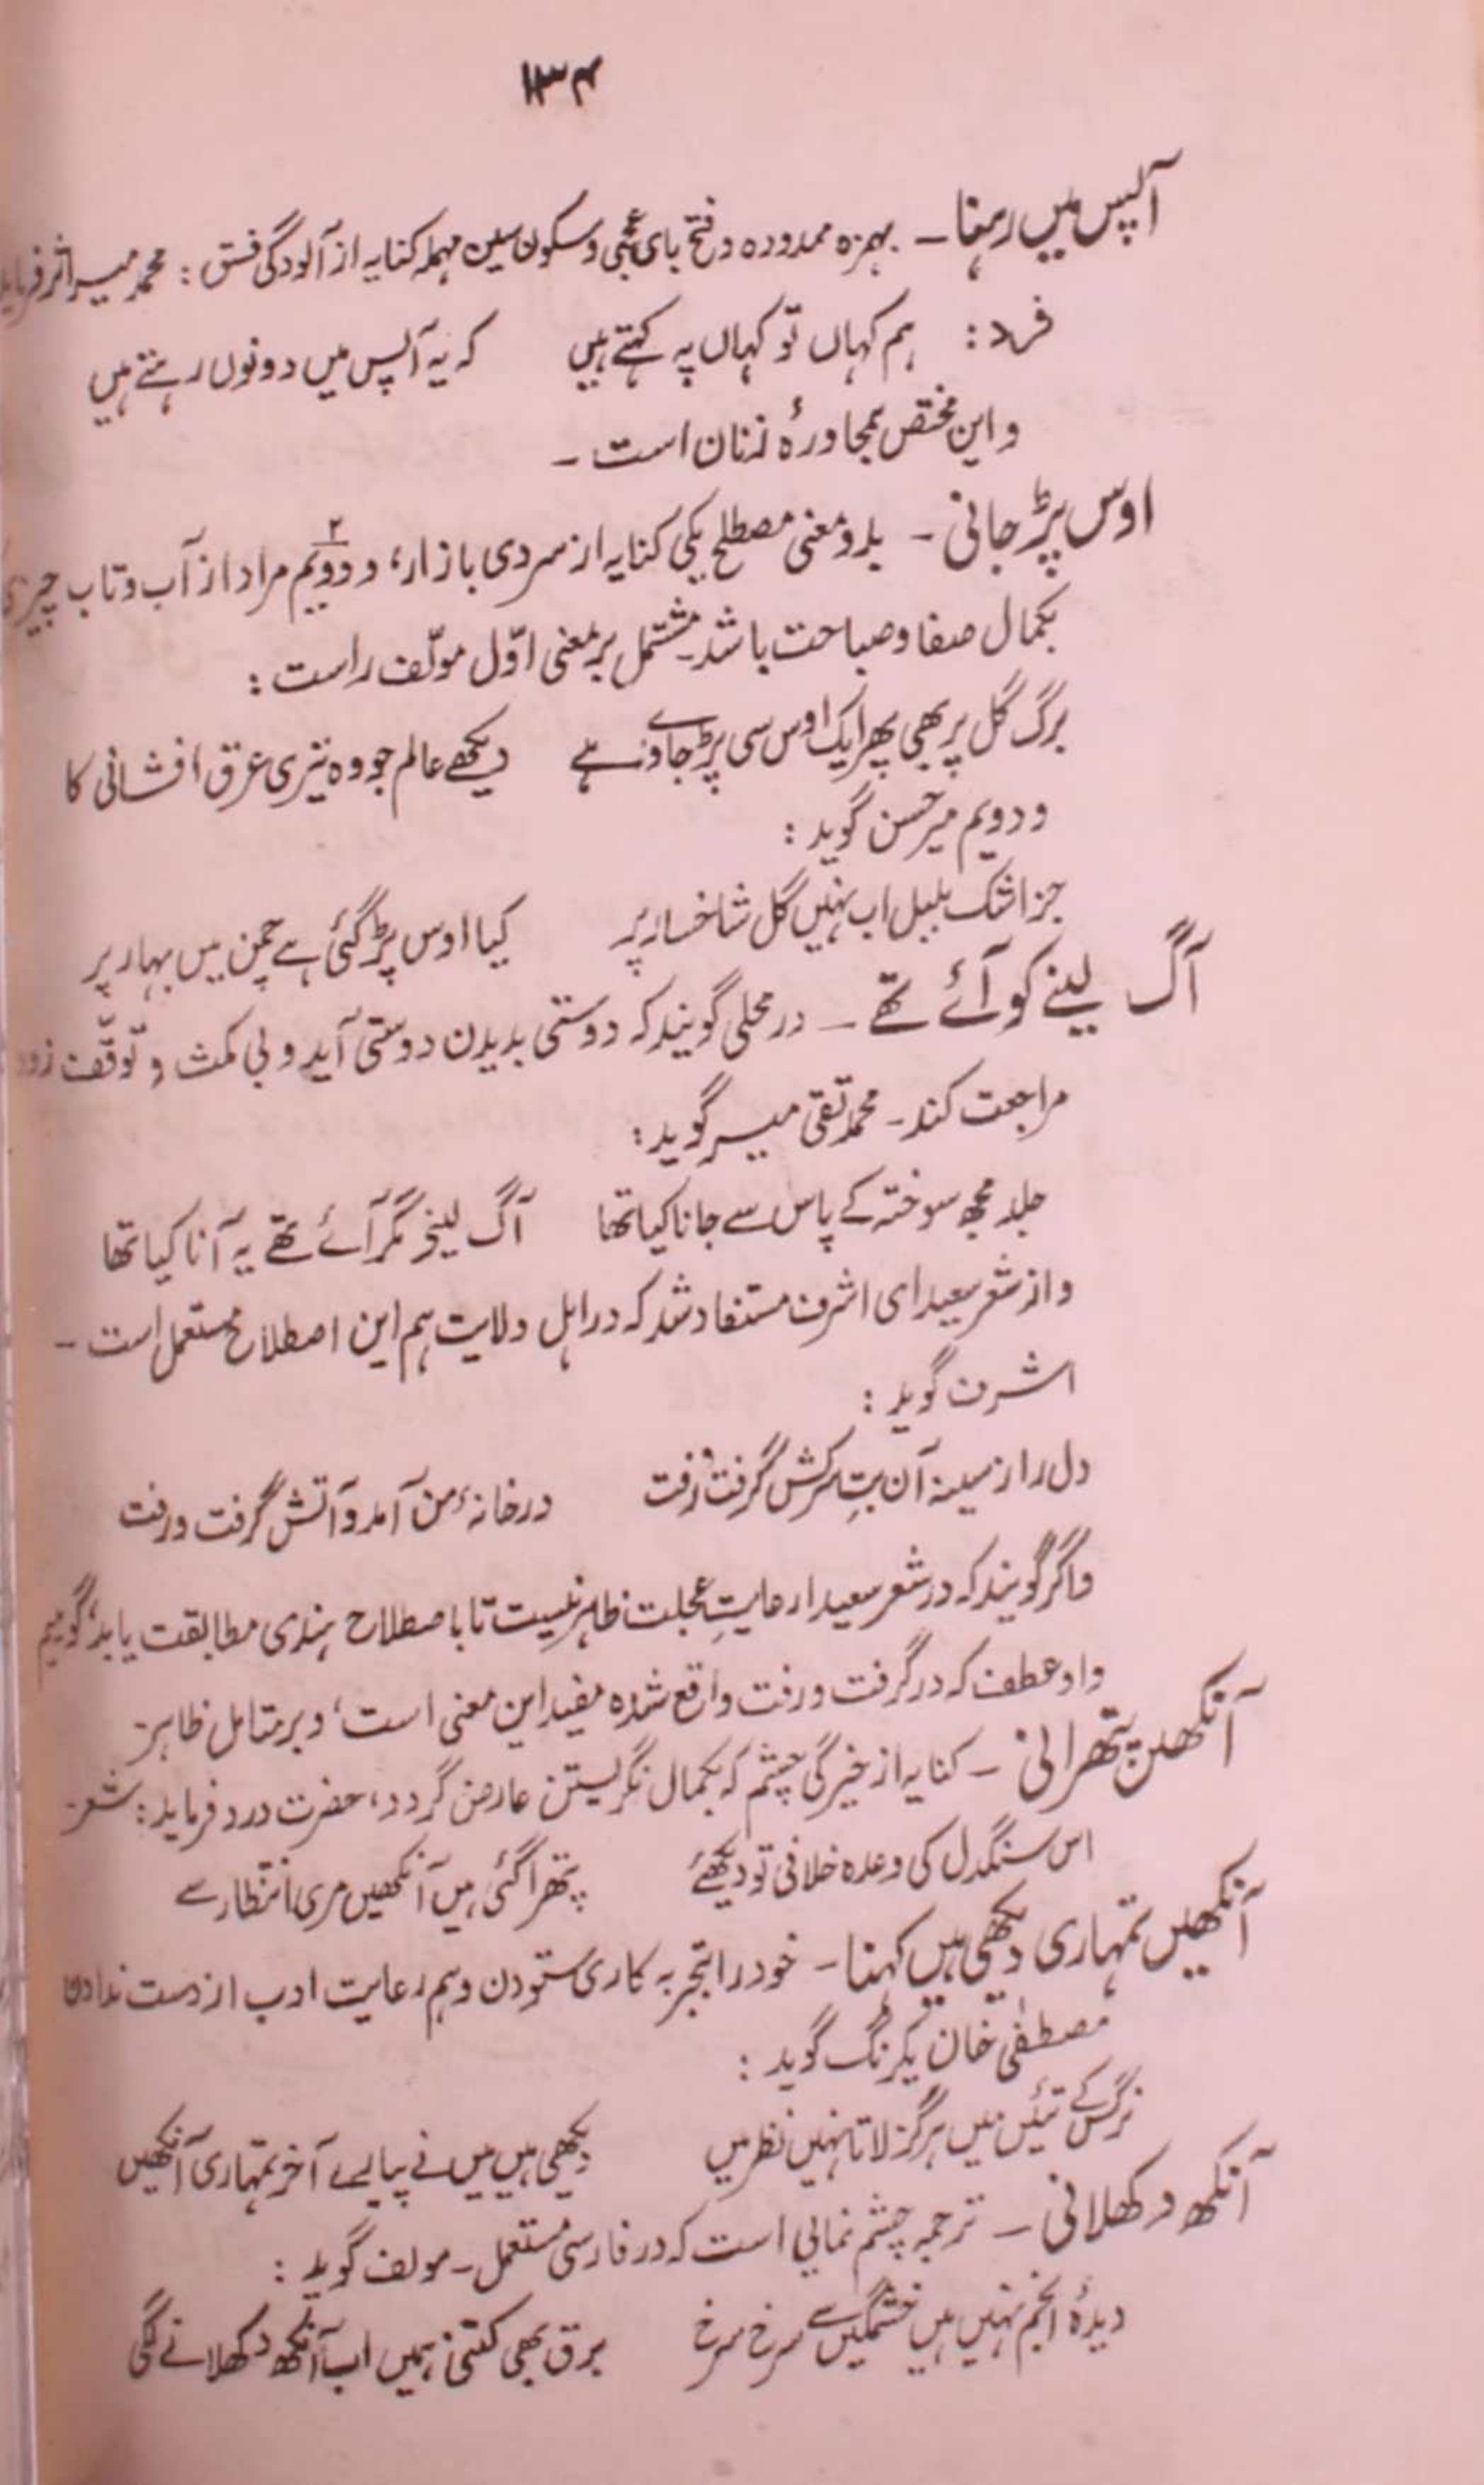 ۱۳۴
آپس میں رہنا ـ بہمزہ ممدودہ و فتح بای عجمی و سکون سین مہملہ کنایہ از آلودگی فسق : محمد میر اثر فرماید
فرد : ہم کہاں تو کہاں پہ کہتے ہیں کہ یہ آپس میں دونوں رہتے ہیں
و این مختص بمحاورۂ زنان است ـ
اوس پڑ جانی ـ بدو معنی مصطلح یکی کنایہ از سردی بازار، و دویم ۲ مراد از آب و تاب چیزی
بکمال صفا و صباحت باشد ـ مشتمل بر معنی اوّل مولّف راست :
برگ گل پر بھی پھر ایک اوس سی پڑ جاوے ہے دیکھے عالم جو وہ تیری عرق افشانی کا
و دویم میر حسن گوید :
جز اشک بلبل اب نہیں گل شاخسار پر کیا اوس پڑ گئی ہے چمن میں بہار پر
آگ لینے کو آئے تھے ـ در محلی گویند کہ دوستی بدیدن دوستی آید و بی مکث و توقّف زود
مراجعت کند ـ محمد تقی میر گوید :
جلد مجھ سوختہ کے پاس سے جانا کیا تھا آگ لینے مگر آئے تھے یہ آنا کیا تھا
و از شعر سعیدای اشرف مستفاد شد کہ در اہل ولایت ہم این اصطلاح مستعمل است ـ
اشرف گوید :
دل را ز سینہ آن بتِ سرکش گرفت و رفت در خانۂ من آمد و آتش گرفت و رفت
و اگر گویند کہ در شعر سعیدا رعایتِ عجلت ظاہر نیست تا با صطلاح ہندی مطابقت یابد، گوییم
واو عطف کہ در گرفت و رفت واقع شدہ مفید این معنی است، و بر متامل ظاہر ـ
آنکھیں پتھرانی ـ کنایہ از خیرگی چشم کہ بکمال نگریستن عارض گردد، حضرت درد فرماید : شعر ـ
اس سنگدل کی وعدہ خلافی تو دیکھئے پتھرا گئی ہیں آنکھیں مری انتظار سے
آنکھیں تمہاری دیکھی ہیں کہنا ـ خود را بتجربہ کاری ستودن و ہم رعایت ادب از دست ندادن
مصطفٰی خان یکرنگ گوید :
نرگس کے تئیں میں ہرگز لاتا نہیں نظر میں دیکھی ہیں میں نے پیارے آخر تمہاری آنکھیں
آنکھ دکھلانی ـ ترجمہ چشم نمایی است کہ در فارسی مستعمل ـ مولف گوید :
دیدۂ انجم نہیں ہیں خشمگیں سے سرخ سرخ برق بھی کتنی ہمیں اب آنکھ دکھلانے لگی